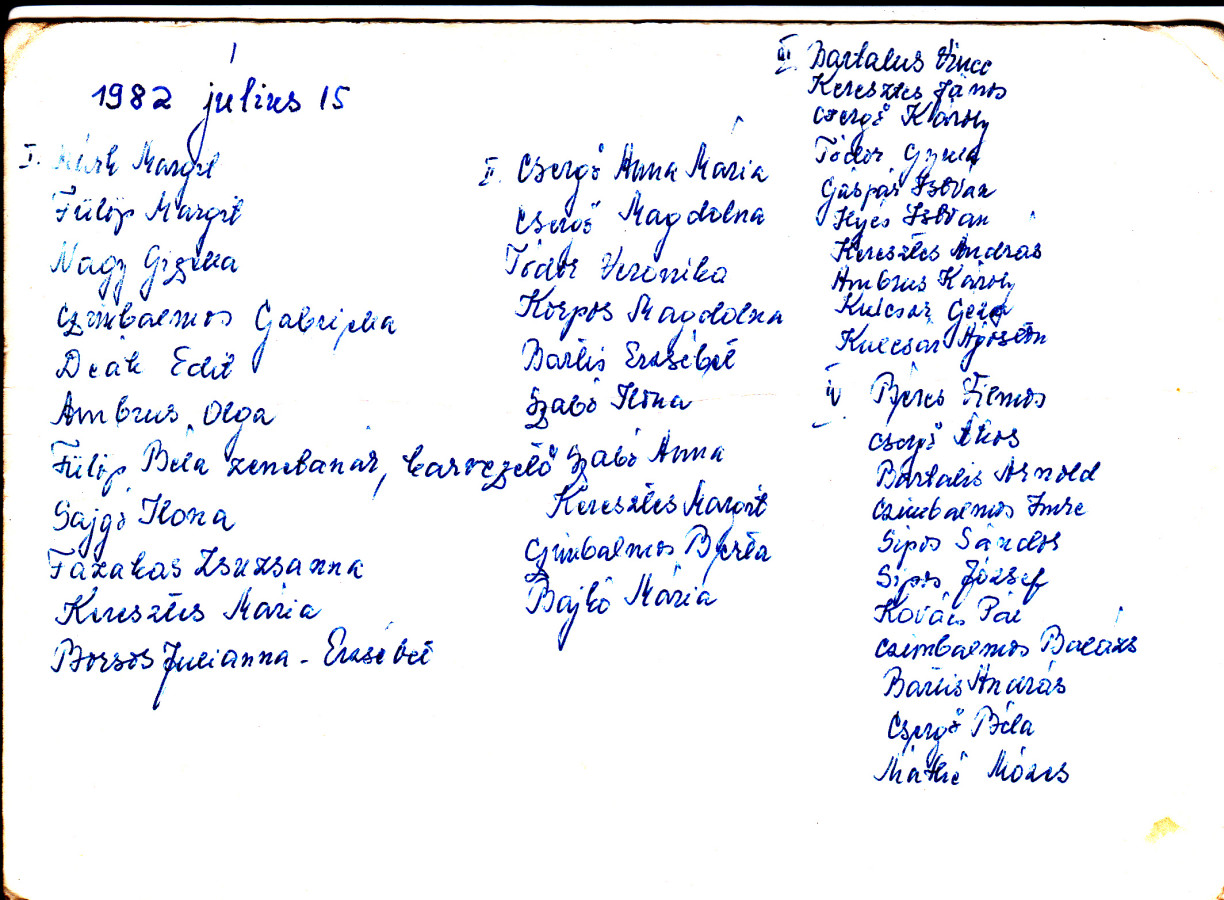 1982 július 15
I. Margit
Fülöp Margit
Nagy Gizella
Czimbalmos Gabriella
Deák Edit
Ambrus Olga
Fülöp Béla zenetanár, karvezető
Gajgó Ilona
Fazakas Zsuzsanna
Keresztes Mária
Borsos Julianna - Erzsébet
II. Csergő Anna Mária
Csergő Magdolna
Tódor Veronika
Korpos Magdolna
Bartis Erzsébet
Szabó Ilona
Szabó Anna
Keresztes Margit
Czimbalmos Berta
Bajkó Mária
III. Bartalus Vince
Keresztes János
Csergő Károly
Tódor Gyula
Gáspár István
Ilyés István
Keresztes András
Ambrus Károly
Kulcsár Géza
Kulcsár Ágoston
IV Béres Vilmos
Csergő Ákos
Bartalis Arnold
Czimbalmos Imre
Sipos Sándor
Sipos József
Kovács Pál
Czimbalmos Balázs
Bartis András
Csergő Béla
Máthé Mózes